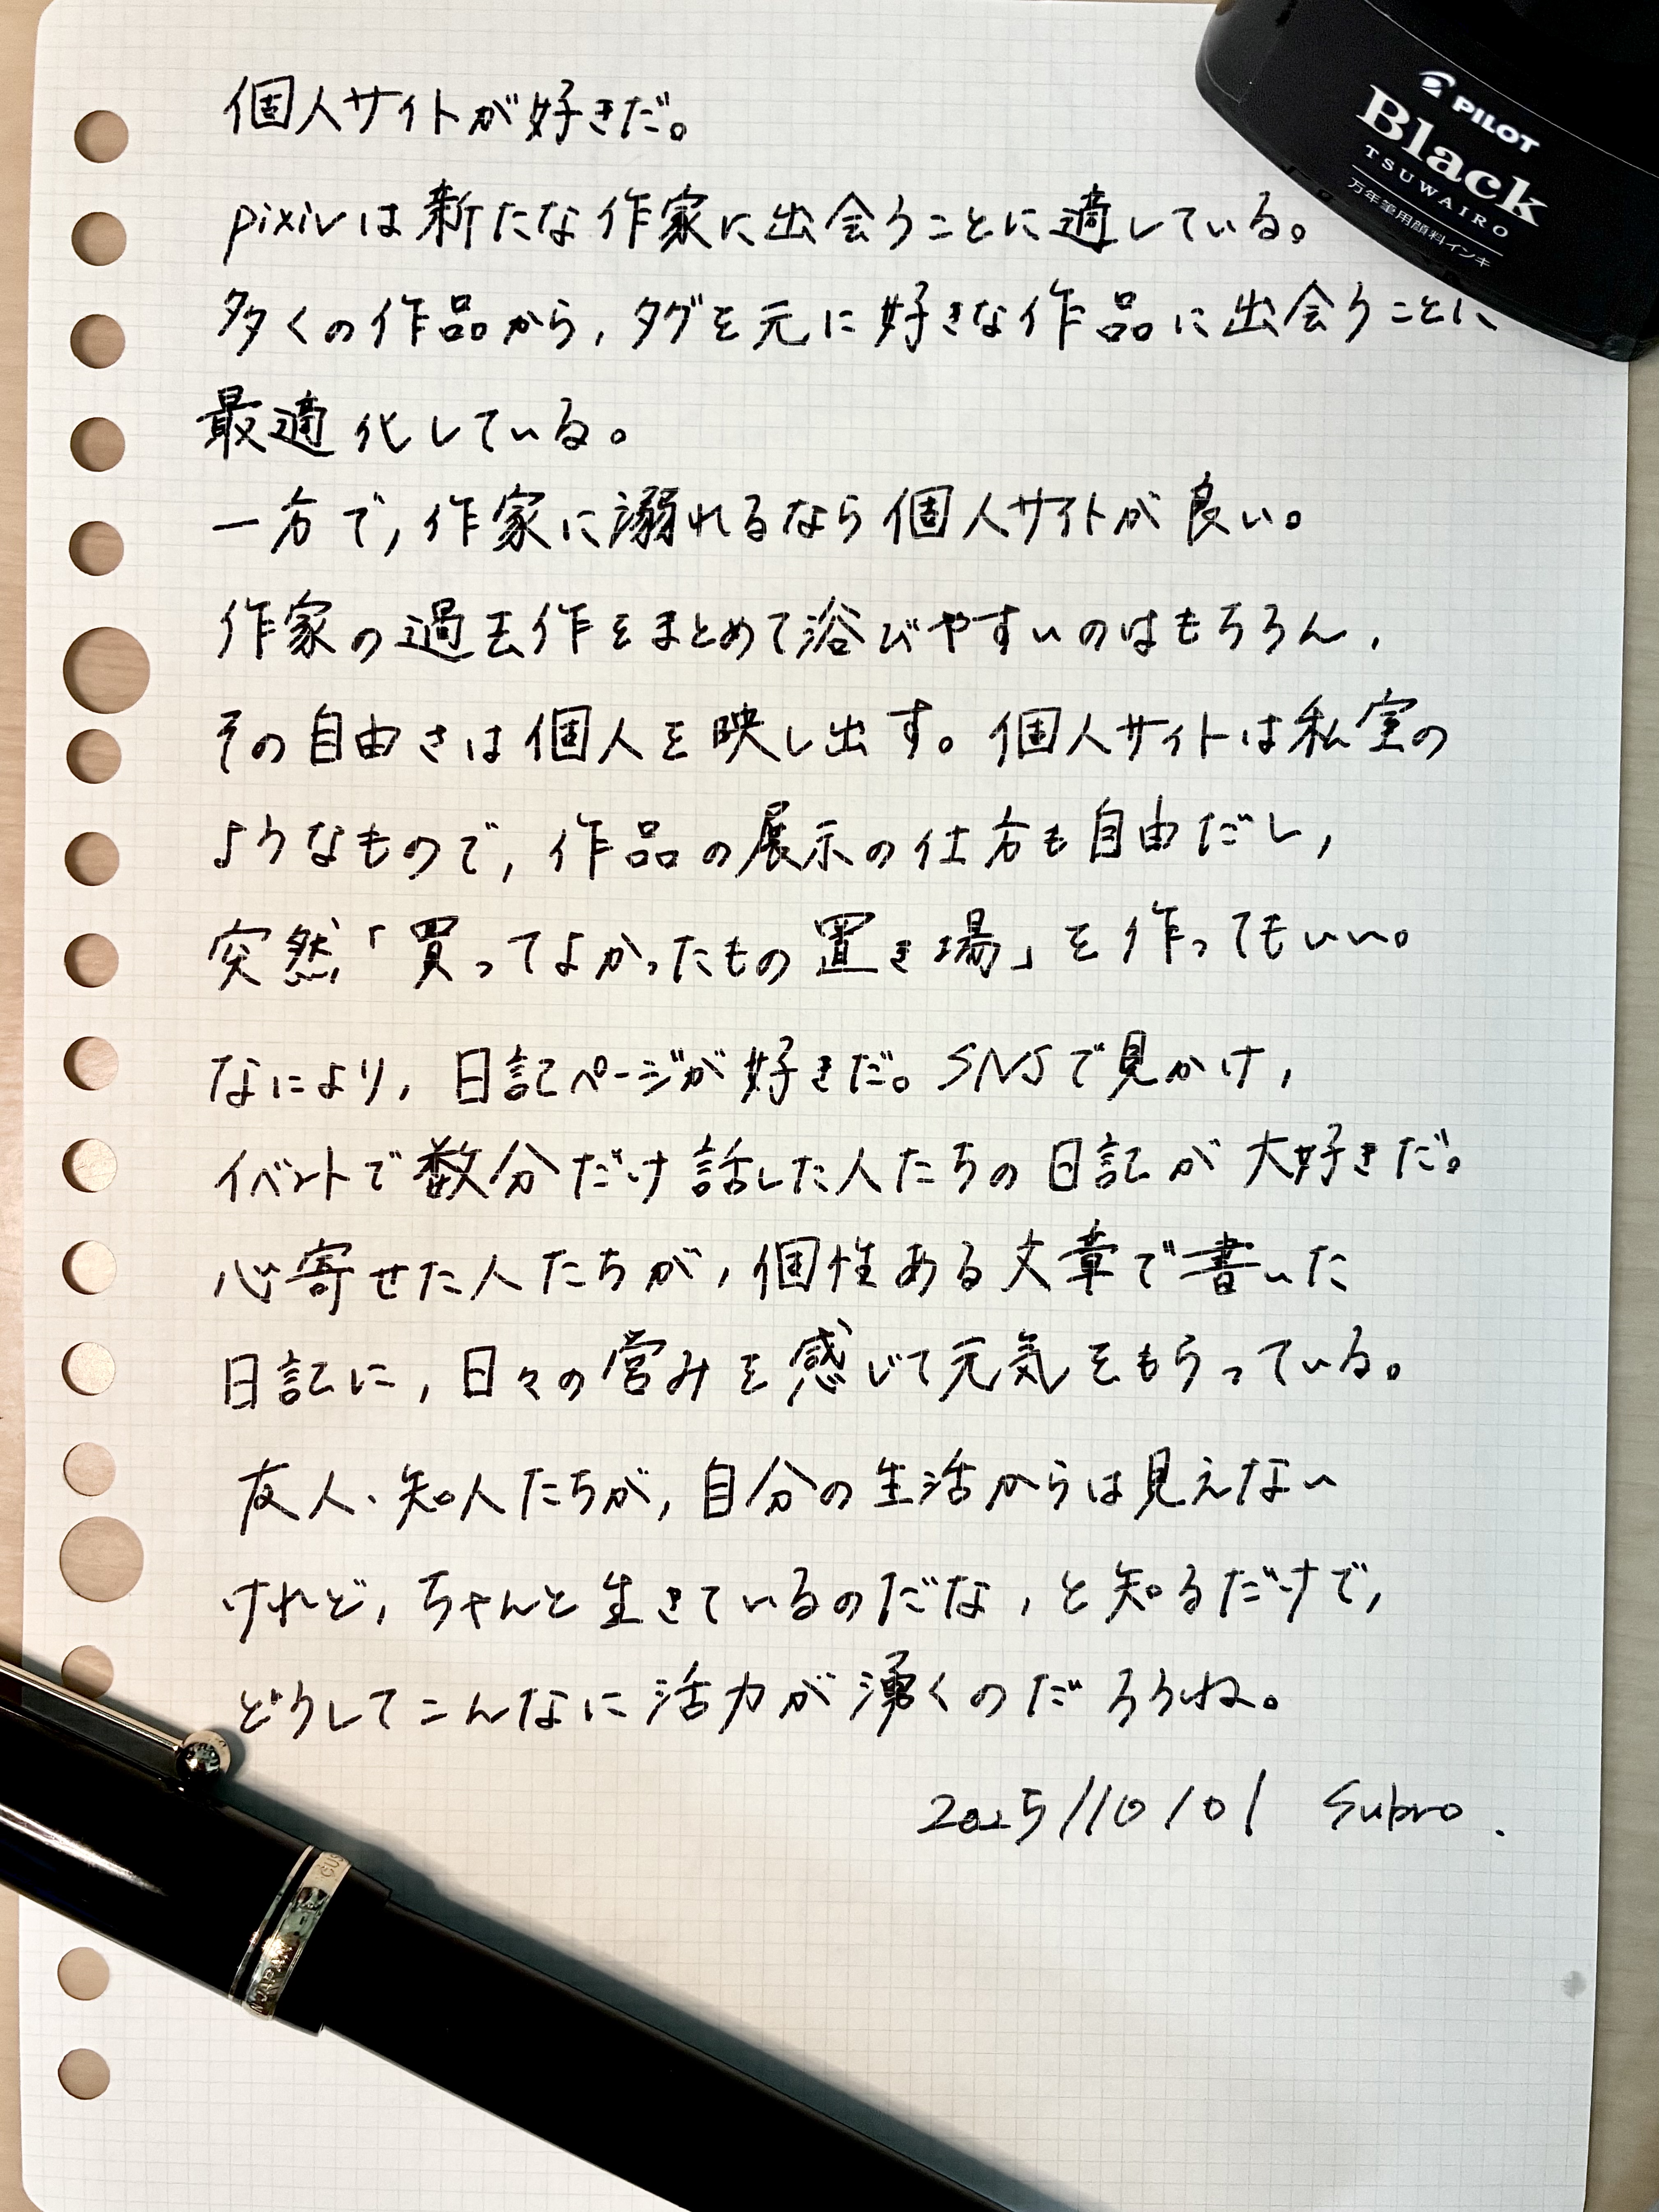 個人サイトが好きだ。
pixivは新たな作家に出会うことに適している。
多くの作品から,タグを元に好きな作品に出会うことに
最適化している。
一方で,作家に溺れるなら個人サイトが良い。
作家の過去作をまとめて浴びやすいのはもちろん,
その自由さは個人を映し出す。個人サイトは私室の
ようなもので,作品の展示の仕方も自由だし,
突然「買ってよかったもの置き場」を作ってもいい。
なにより,日記ページが好きだ。SNSで見かけ,
イベントで数分だけ話した人たちの日記が大好きだ。
心寄せた人たちが,個性ある文章で書いた
日記に,日々の営みを感じて元気をもらっている。
友人、知人たちが,自分の生活からは見えない
けれど,ちゃんと生きているのだな,と知るだけで,
どうしてこんなに活力が湧くのだろうね。
2025/10/01 Subro.
PILOT
Black
TSUWAIRO
万年筆用顔料インキ
CUS
JAPAN